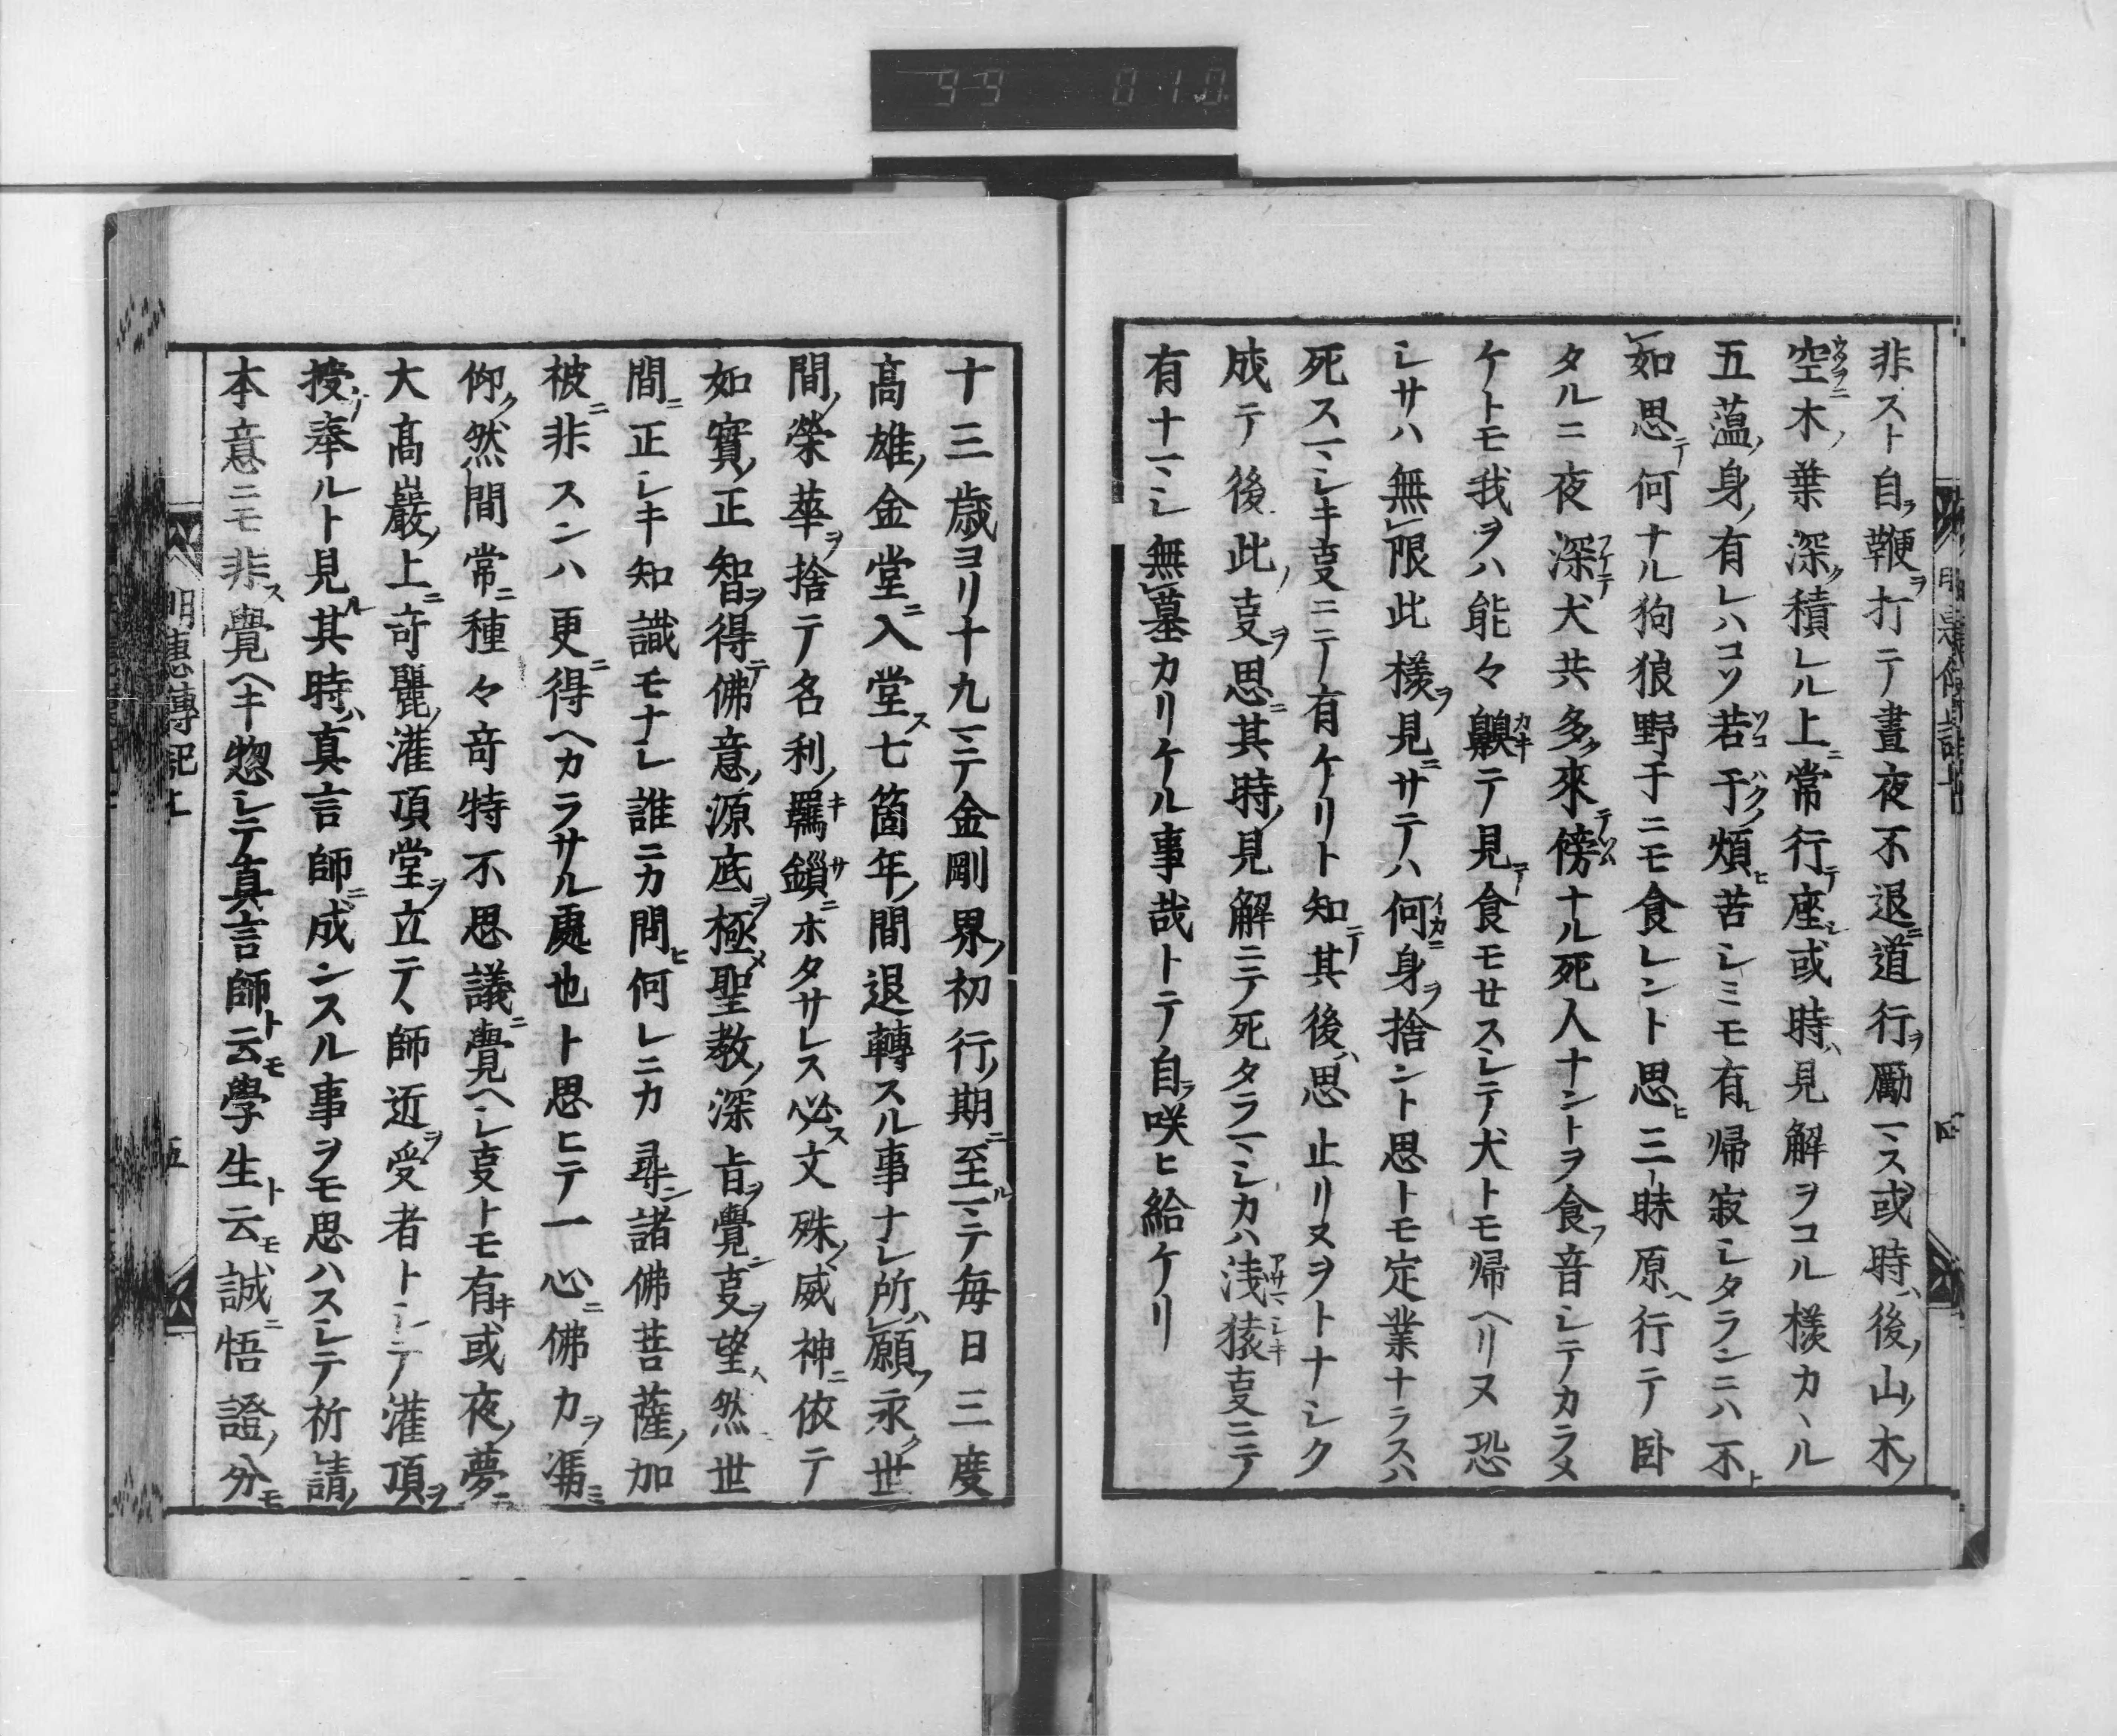 99 010
非スト自ラ鞭ヲ打テ晝夜不退ニ道行ヲ勵マス或時ハ後ノ山ノ木ノ
空木ノ葉深ク積レル上ニ常行テ座シ或時ハ見解ヲコル樣カヽル
五蘊ノ身ノ有レハコソ若干ノ煩ヒ苦シミモ有レ帰寂シタランニハ不ト
如思テ何ナル狗狼野干ニモ食レント思ヒ三昧原ヘ行テ卧
タルニ夜深テ犬共多ク來傍ナル死人ナントヲ食フ音シテカラメ
ケトモ我ヲハ能々齅テ見テ食モセスシテ犬トモ帰ヘリヌ恐
シサハ無限此樣ヲ見ニサテハ何ニ身ヲ捨ント思トモ定業ナラスハ
死スマシキ叓ニテ有ケリト知テ其後ハ思止リヌヲトナシク
成テ後此ノ叓ヲ思ニ其時ノ見解ニテ死タラマシカハ浅猿叓ニテ
有ナマシ無墓カリケル事哉トテ自ラ咲ヒ給ケリ
十三歳ヨリ十九マテ金剛界ノ初行ノ期ニ至ルマテ毎日三度
髙雄ノ金堂ニ入堂ス七箇年ノ間退轉スル事ナシ所願ハ永ク世
間ノ榮華ヲ捨テ名利ノ羈鎻ニホタサレス必ス文殊ノ威神ニ依テ
如實ノ正智ヲ得テ佛意ノ源底ヲ極メ聖教ノ深㫖ヲ覺ン叓ヲ望ム然世
間ニ正シキ知識モナシ誰ニカ問ヒ何レニカ尋ン諸佛菩薩ノ加
被ニ非スンハ更ニ得ヘカラサル處也ト思ヒテ一心ニ佛力ヲ馮ミ
仰ク然間常ニ種々竒特不思議ニ覺ヘシ叓トモ有キ或夜ノ夢ニ
大髙巖ノ上ニ竒麗ノ灌頂堂ヲ立テヽ師近ヲ受者トシテ灌頂ヲ
授ケ奉ルト見ル其時ハ真言師ニ成ンスル事ヲモ思ハスシテ祈請ノ
本意ニモ非ス覺ヘキ惣シテ真言師トモ云學生トモ云誠ニ悟證ノ分モ
明惠傳記上
五